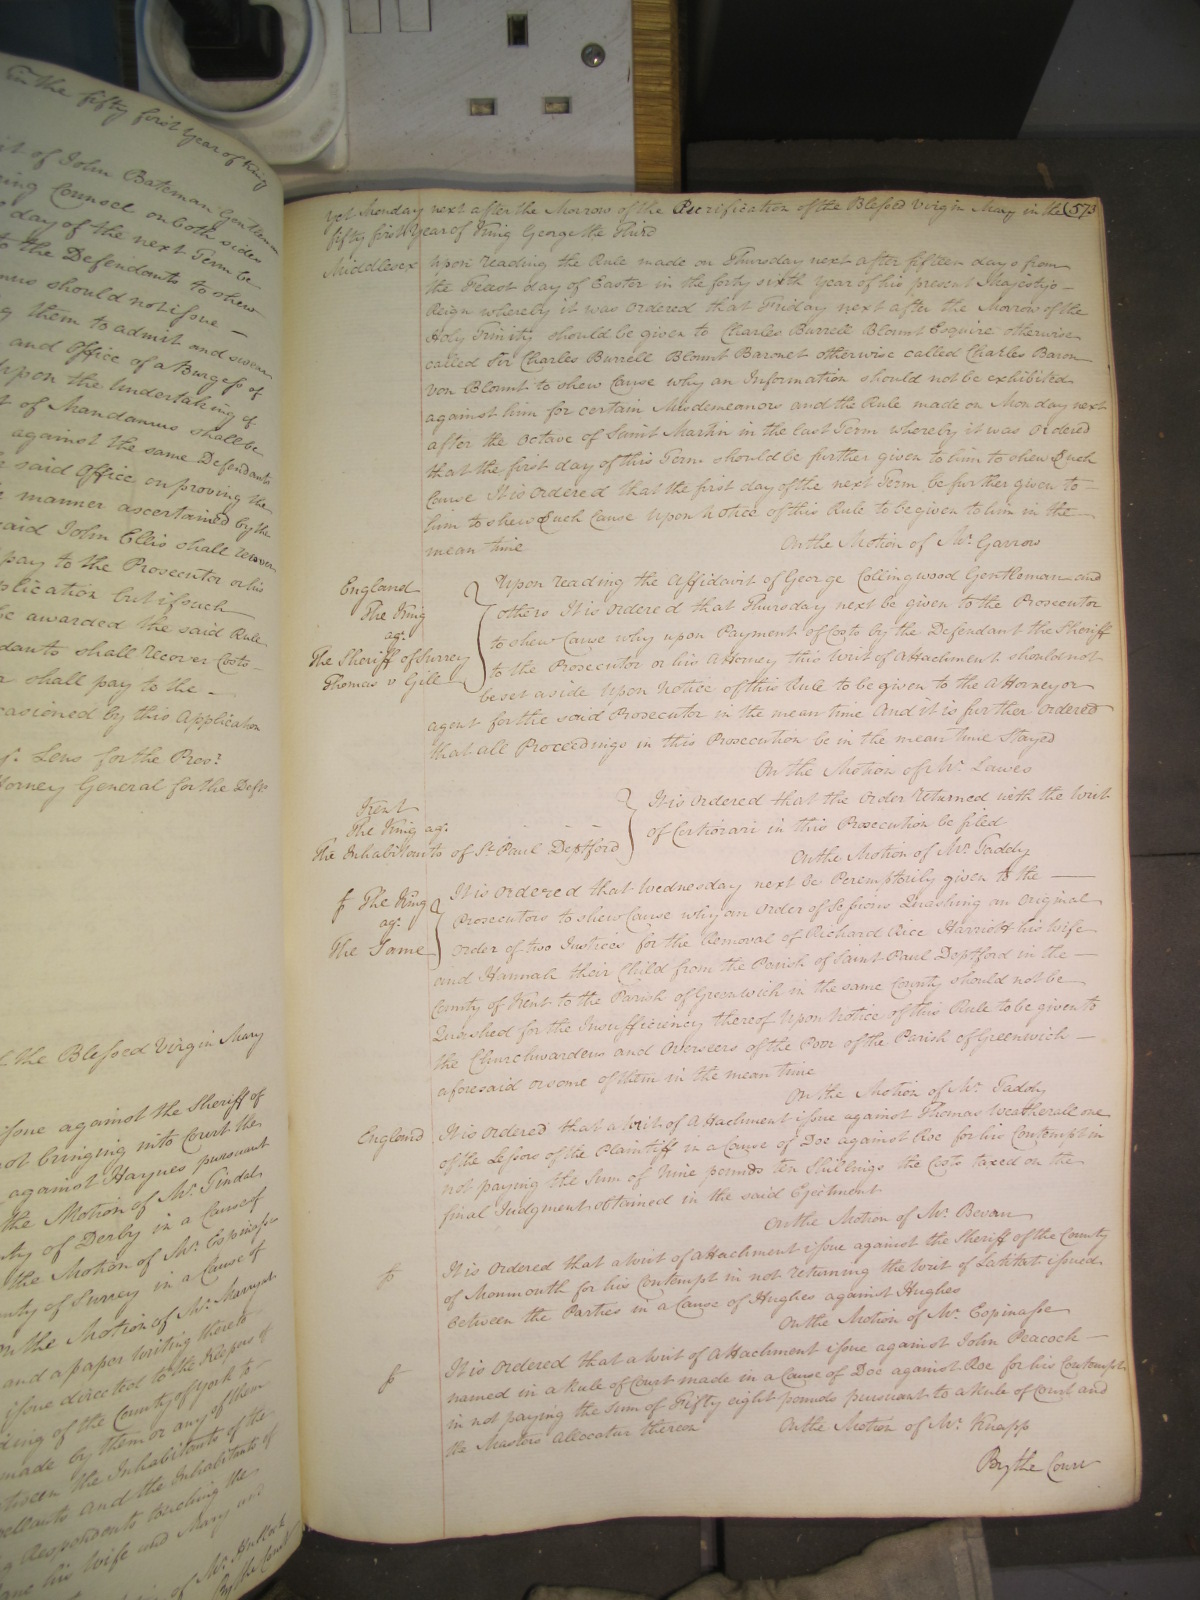 In the fifty first Year of King
of John Bateman Gentleman
ing Counsel on both sides
day of the next Term be
to the Defendants to shew
should not issue —
them to admit and swear
and Office of a Burgess of
upon the Undertaking of
of Mandamus shall be
against the same Defendants
said Office on proving the
manner ascertained by the
said John Ellis shall recover
pay to the Prosecutor or his
plication but if such
be awarded the said Rule
dants shall recover Costs
shall pay to the —
casioned by this Application
Lens for the Pros.r
torney General for the Def.ts
the Blessed Virgin Mary
issue against the Sheriff of
not bringing into Court the
against Haynes pursuant
the Motion of Mr. Tindal
ty of Derby in a Cause of
the Motion of Mr. Espinasse
unty of Surrey in a Cause of
On the Motion of Mr. Marryat
and a paper writing thereto
issue directed to the Keepers of
ding of the County of York to
made by them or any of them
etween the Inhabitants of the
pellants and the Inhabitants of
Respondents touching the
his wife and Mary
of Mr. Hullock
By the Court
Yet Monday next after the Morrow of the Purification of the Blessed Virgin Mary in the 573
fifty first Year of King George the Third
Middlesex Upon reading the Rule made on Thursday next after fifteen days from
the Feast day of Easter in the forty sixth Year of his present Majesty's —
Reign whereby it was ordered that Friday next after the Morrow of the
Holy Trinity should be given to Charles Burrell Blount Esquire otherwise
called Sir Charles Burrell Blount Baronet otherwise called Charles Baron
von Blount to shew Cause why an Information should not be exhibited
against him for certain Misdemeanors and the Rule made on Monday next
after the Octave of Saint Martin in the last Term whereby it was ordered
that the first day of this Term should be further given to him to shew Such
Cause It is Ordered that the first day of the next Term be further given to —
him to shew Such Cause Upon Notice of this Rule to be given to him in the —
mean time On the Motion of Mr. Garrow
England
The King
ag.t
The Sheriff of Surrey
Thomas v Gill
Upon reading the Affidavit of George Collingwood Gentleman and
others It is ordered that Thursday next be given to the Prosecutor
to shew Cause why upon Payment of Costs by the Defendant the Sheriff
to the Prosecutor or his Attorney this Writ of Attachment should not
be set aside Upon Notice of this Rule to be given to the Attorney or
agent for the said Prosecutor in the mean time And it is further Ordered
that all Proceedings in this Prosecution be in the mean time Stayed
On the Motion of Mr. Lawes
Kent
The King ag.t
The Inhabitants of St. Paul Deptford
It is Ordered that the Order returned with the Writ
of Certiorari in this Prosecution be filed
On the Motion of Mr. Taddy
The King
ag.t
The Same
It is Ordered that Wednesday next be Peremptorily given to the —
Prosecutors to shew Cause why an Order of Sessions Quashing an Original
Order of two Justices for the Removal of Richard Rice Harriott his Wife
and Hannah their Child from the Parish of Saint Paul Deptford in the —
County of Kent to the Parish of Greenwich in the same County should not be
Quashed for the Insufficiency thereof Upon Notice of this Rule to be given to
the Churchwardens and Overseers of the Poor of the Parish of Greenwich —
aforesaid or some of them in the mean time
On the Motion of Mr. Taddy
England It is Ordered that a Writ of Attachment issue against Thomas Weatherall one
of the Lessors of the Plaintiff in a Cause of Doe against Roe for his Contempt in
not paying the Sum of Nine pounds ten Shillings the Costs taxed on the
final Judgment obtained in the said Ejectment
On the Motion of Mr. Bevan
It is Ordered that a Writ of Attachment issue against the Sheriff of the County
of Monmouth for his Contempt in not returning the Writ of Latitat issued
between the Parties in a Cause of Hughes against Hughes
On the Motion of Mr. Espinasse
It is Ordered that a Writ of Attachment issue against John Peacock —
named in a Rule of Court made in a Cause of Doe against Roe for his Contempt
in not paying the Sum of Fifty eight pounds pursuant to a Rule of Court and
the Masters Allocatur thereon On the Motion of Mr. Knapp
By the Court